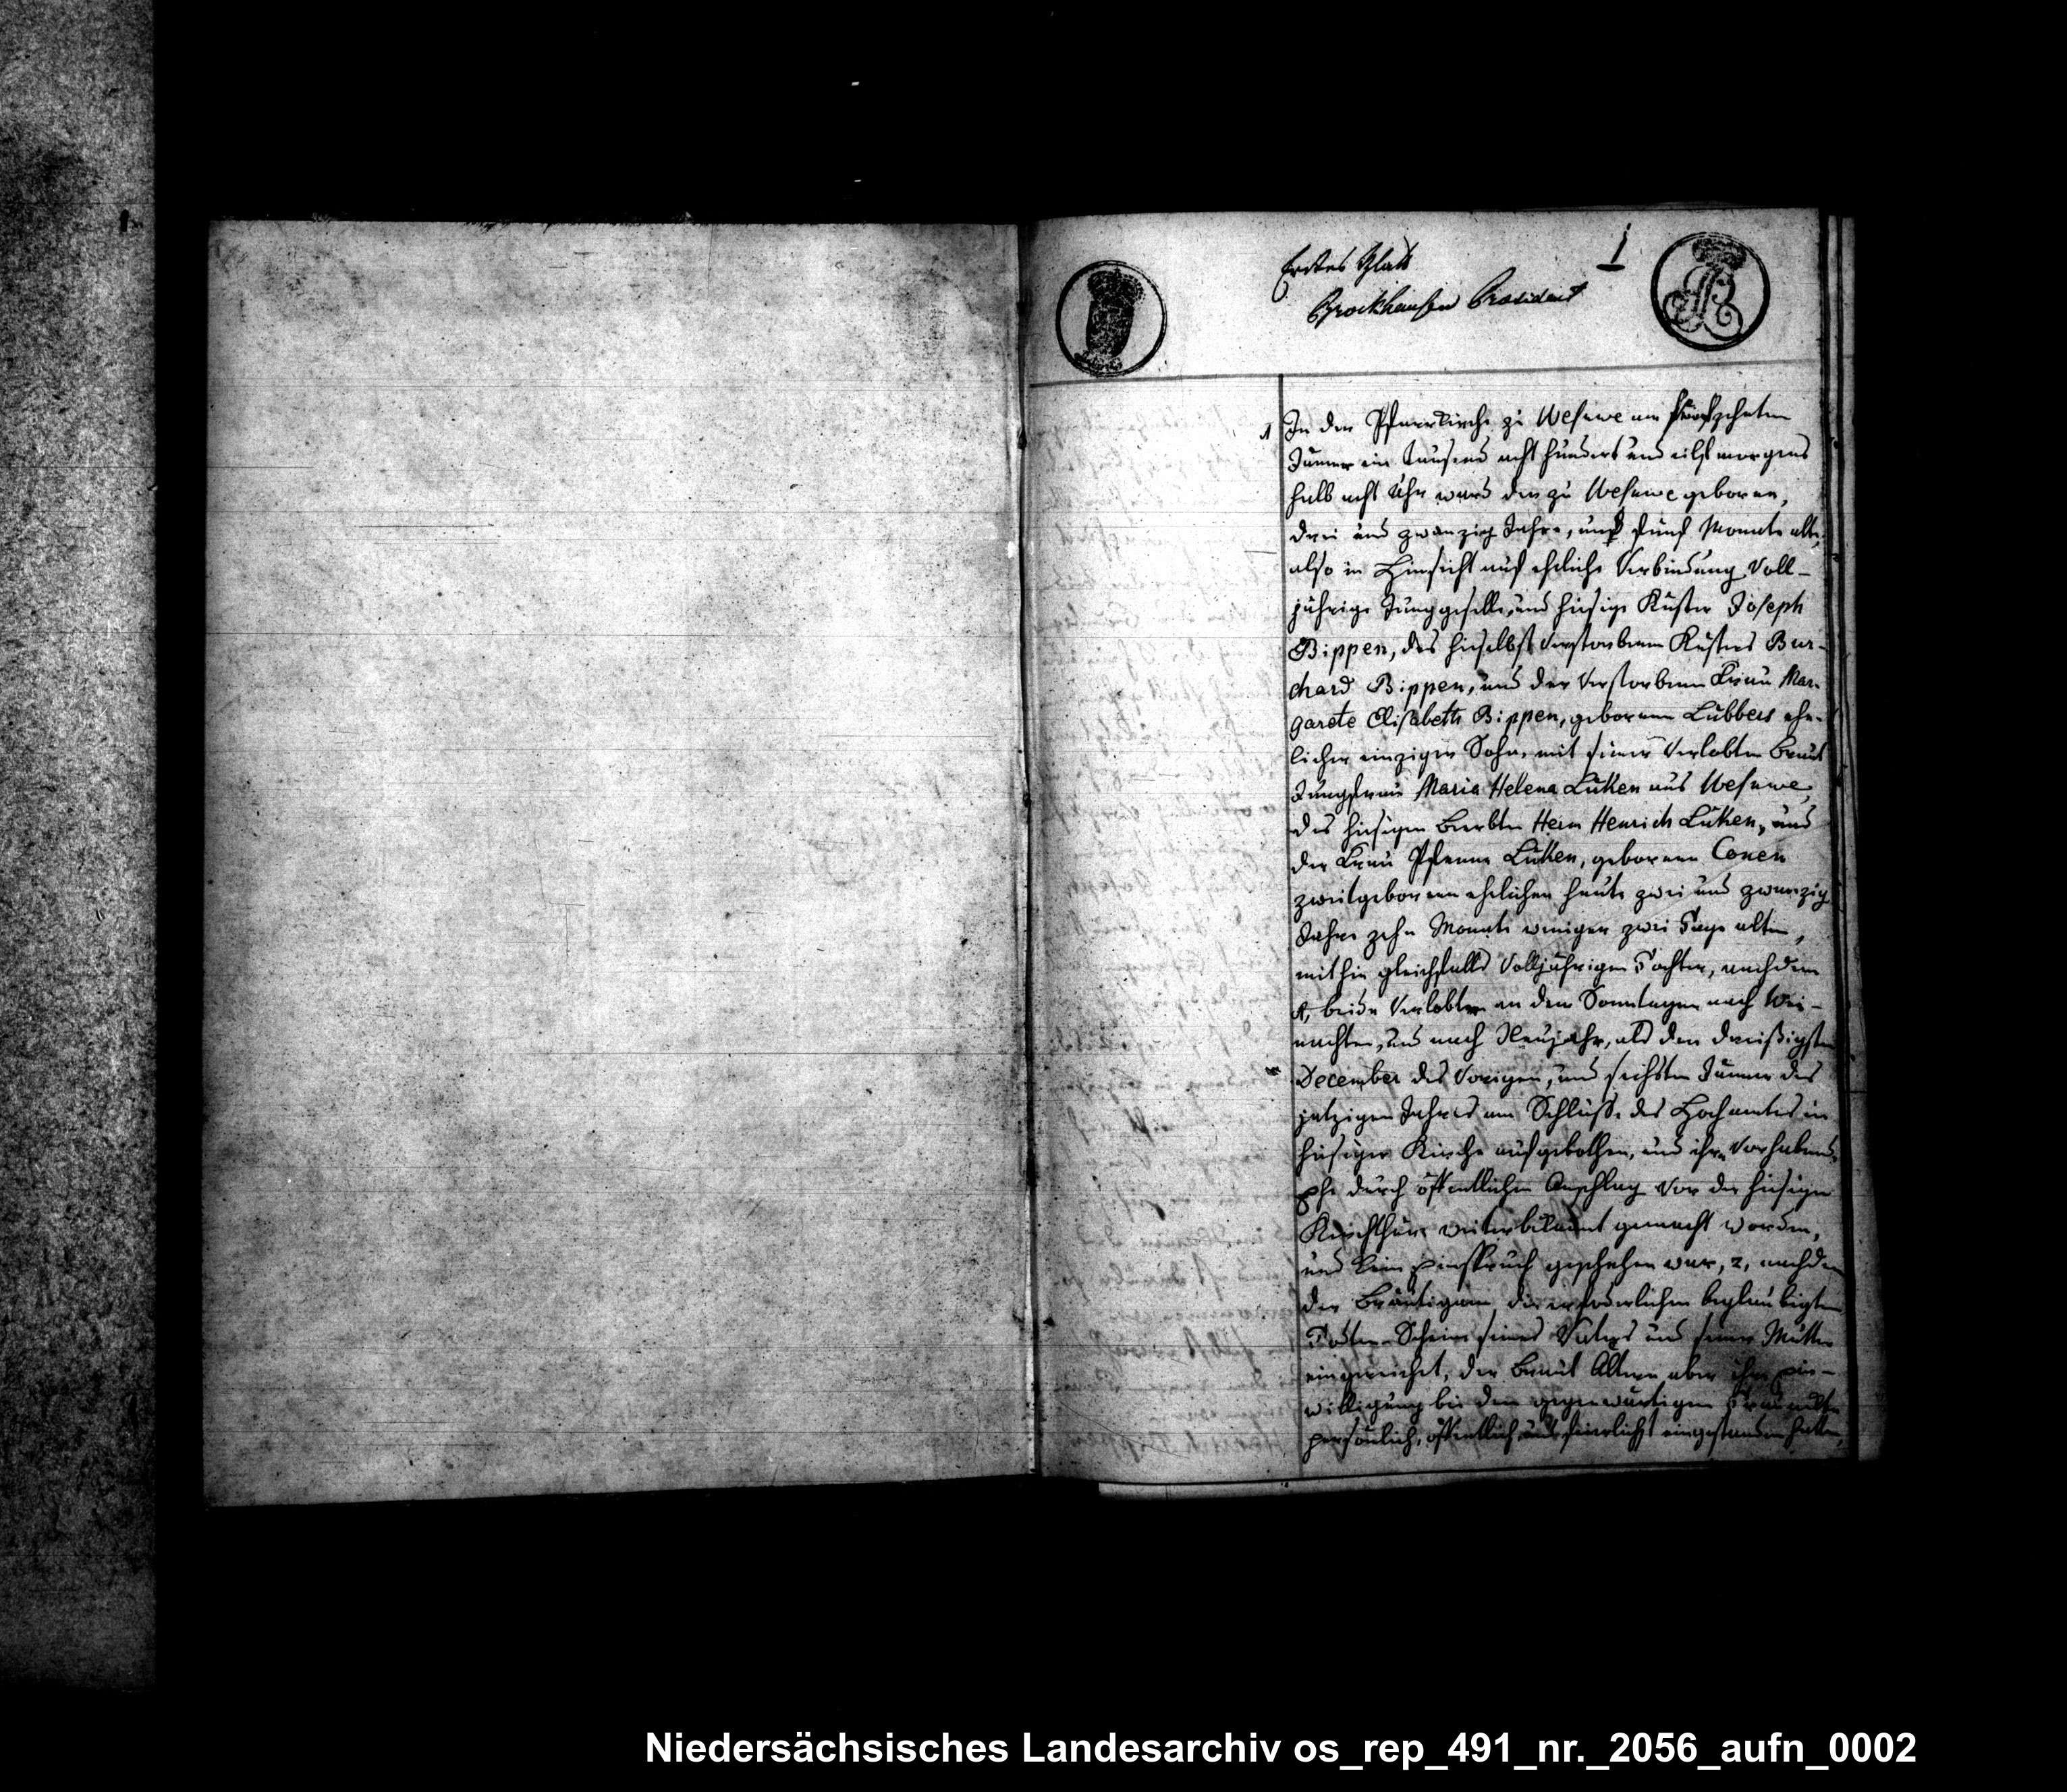 Erstes Blatt
1
Brockhausen President
1 In der Pfarrkirche zu Wesuwe am fünfzehnten
Jänner ein tausend acht hundert und eilf morgens
halb acht Uhr ward der zu Wesuwe geboren,
drei und zwanzig Jahre, und fünf Monate alte,
also in Hinsicht auf eheliche Verbindung Voll-
jährige Junggeselle, und hiesige Küster Joseph
Bippen, des hieselbst Verstorbenen Küsters Bur-
chard Bippen, und der Verstorbenen Frau Mar-
garete Elisabeth Bippen, geborenen Lübbers ehe-
licher einziger Sohn, mit seiner Verlobten Braut
Jungfrau Maria Helena Lüken aus Wesuwe,
des hiesigen Beerbten Herrn Henrich Lüken, und
der Frau Lüken, geborenen Conen
zweitgeborenen ehelichen heute zwei und zwanzig
Jahre zehn Monate weniger zwei Tage alten,
mithin gleichfalls Volljährigen Tochter, nachdem
1, beide Verlobten an den Sonntagen nach Wei-
nachten, und nach Neujahr, als den dreißigsten
December des Vorigen, und sechsten Jänner des
jetzigen Jahres am Schlusse des Hochamtes in
hiesiger Kirche aufgebothen, und ihre Vorhabende
Ehe durch öffentlichen Anschlag vor der hiesigen
Kirchthüre weiter bekannt gemacht worden,
und kein Einspruch geschehen war, 2, nachdem
der Bräutigam die erforderlichen beglaubigten
Todten-Scheine seines Vaters und seiner Mutter
eingereicht, der Braut Altern aber ihre Ein-
willigung bei dem gegenwärtigen
persönlich, öffentlich und feierlichst eingestanden hatten,
Niedersächsisches Landesarchiv os_rep_491_nr._2056_aufn_0002